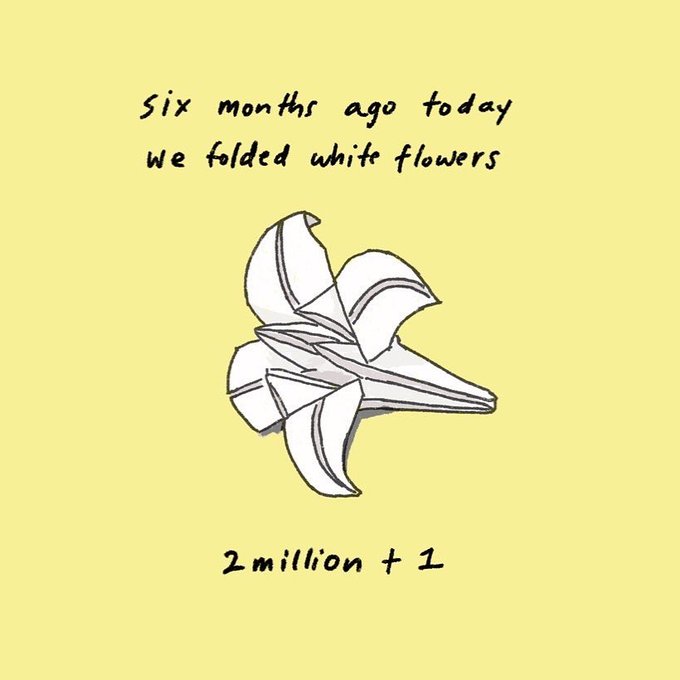 six months ago today
we folded white flowers
2 million + 1